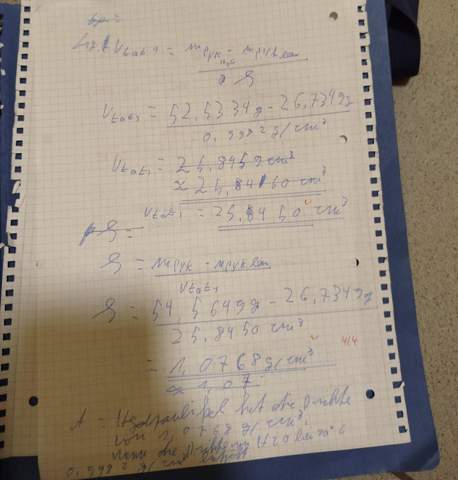 V tats = mpyk - mpyk leer
H₂O
ρ
V tats = 52,5334g - 26,7349g
0,9982 g/cm³
V tats = 25,845g cm³
≈ 25,84160 cm³
V tats = 25,8450 cm³
ρ =
ρ = mpyk - mpyk leer
V tats
ρ = 54,5649g - 26,7349g
25,8450 cm³
= 1,0768 g/cm³
4/4
≈ 1,07
A = hat die Dichte
von 1,0768 g/cm³,
wenn die Dichte von H2O
0,9982 g/cm³